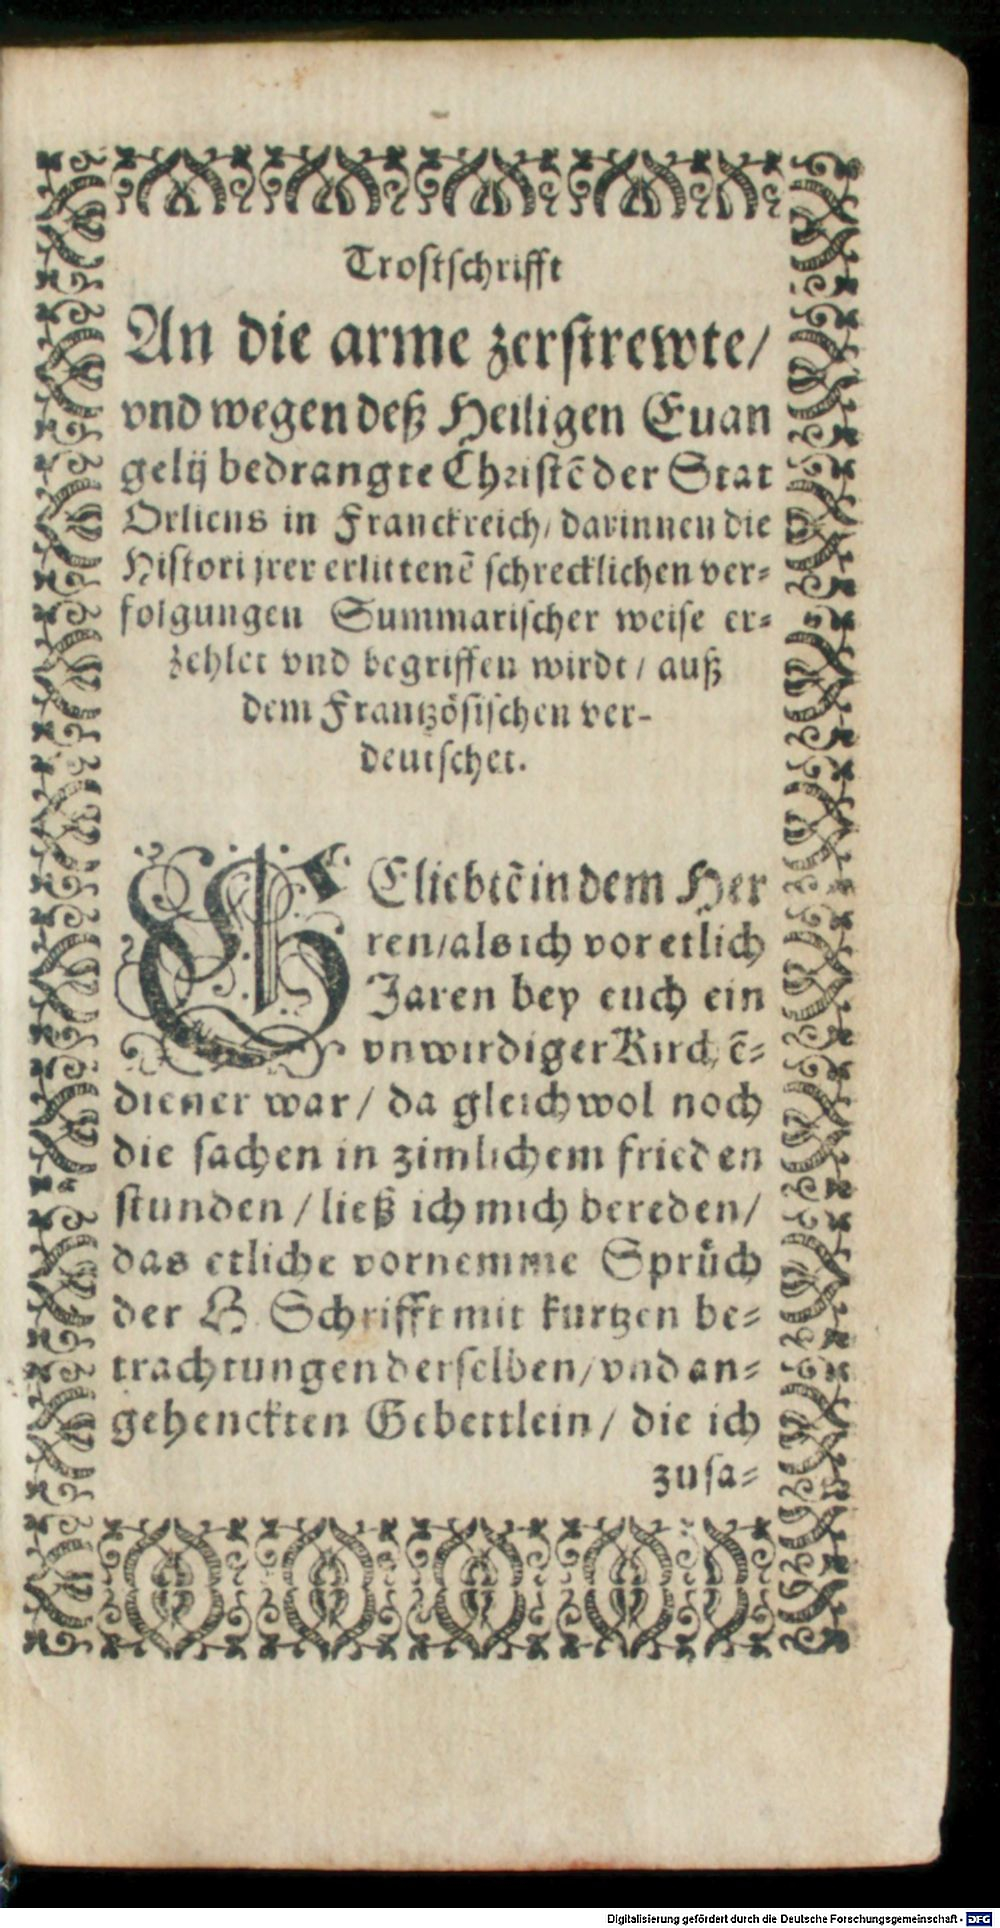 Trostschrifft
An die arme zerstrewte/
vnd wegen deß Heiligen Euan
gelij bedrangte Christē der Stat
Orliens in Franckreich/ darinnen die
Histori jrer erlittenē schrecklichen ver-
folgungen Summarischer weise er-
zehlet vnd begriffen wirdt/ auß
dem Frantzösischen ver-
deutschet.
GEliebtē in dem Her
ren/ als ich vor etlich
Jaren bey euch ein
vnwirdiger Kirchē-
diener war/ da gleichwol noch
die sachen in zimlichem frieden
stunden/ ließ ich mich bereden/
das etliche vornemme Sprüch
der H. Schrifft mit kurtzen be-
trachtungen derselben/ vnd an-
gehenckten Gebettlein/ die ich
zusa-
Digitalisierung gefördert durch die Deutsche Forschungsgemeinschaft - DFG